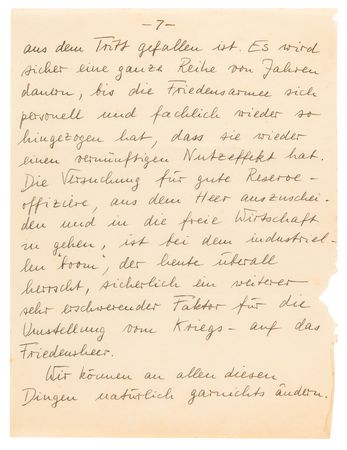 - 7 -
aus dem Tritt gefallen ist. Es wird
sicher eine ganze Reihe von Jahren
dauern, bis die Friedensarmee sich
personell und fachlich wieder so
hingezogen hat, dass sie wieder
einen vernünftigen Nutzeffekt hat.
Die Versuchung für gute Reserve-
offiziere, aus dem Heer auszuschei-
den und in die freie Wirtschaft
zu gehen, ist bei dem industriel-
len "boom", der heute überall
herrscht, sicherlich ein weiterer
sehr erschwerender Faktor für die
Umstellung vom Kriegs- auf das
Friedensheer.
Wir können an allen diesen
Dingen natürlich garnichts ändern.